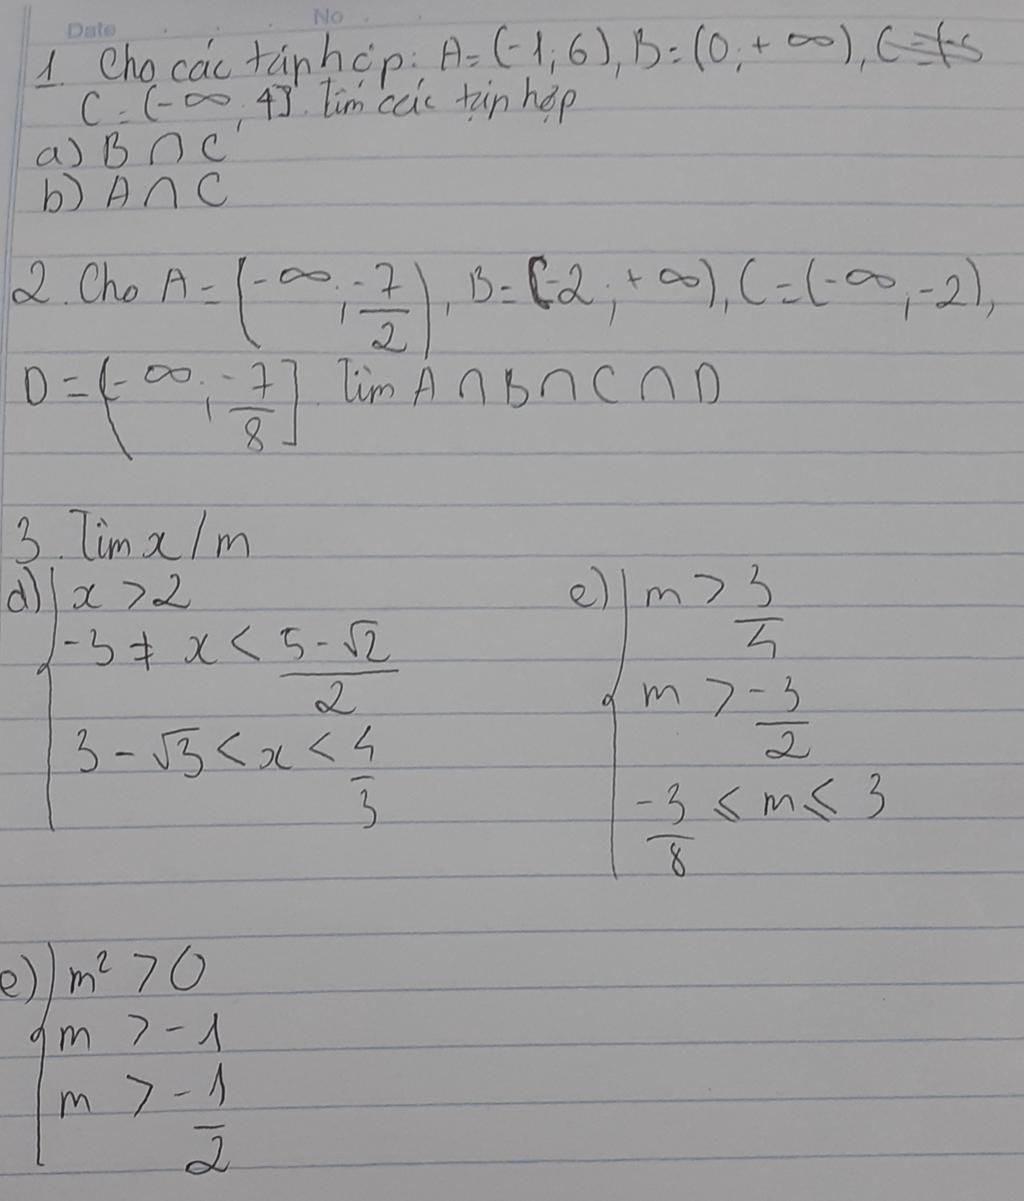 Date No
1. Cho các tập hợp: A = (-1; 6), B = (0; +∞),
C = (-∞; 4]. Tìm các tập hợp
a) B ∩ C
b) A ∩ C
2. Cho A = (-∞; -7/2), B = [-2; +∞), C = (-∞; -2),
D = (-∞; -7/8]. Tìm A ∩ B ∩ C ∩ D
3. Tìm x/m
d) { x > 2
-3 ≠ x < (5-√2)/2
3 - √3 < x < 4/3
e) { m > 3/4
m > -3/2
-3/8 ≤ m ≤ 3
e) { m² > 0
m > -1
m > -1/2